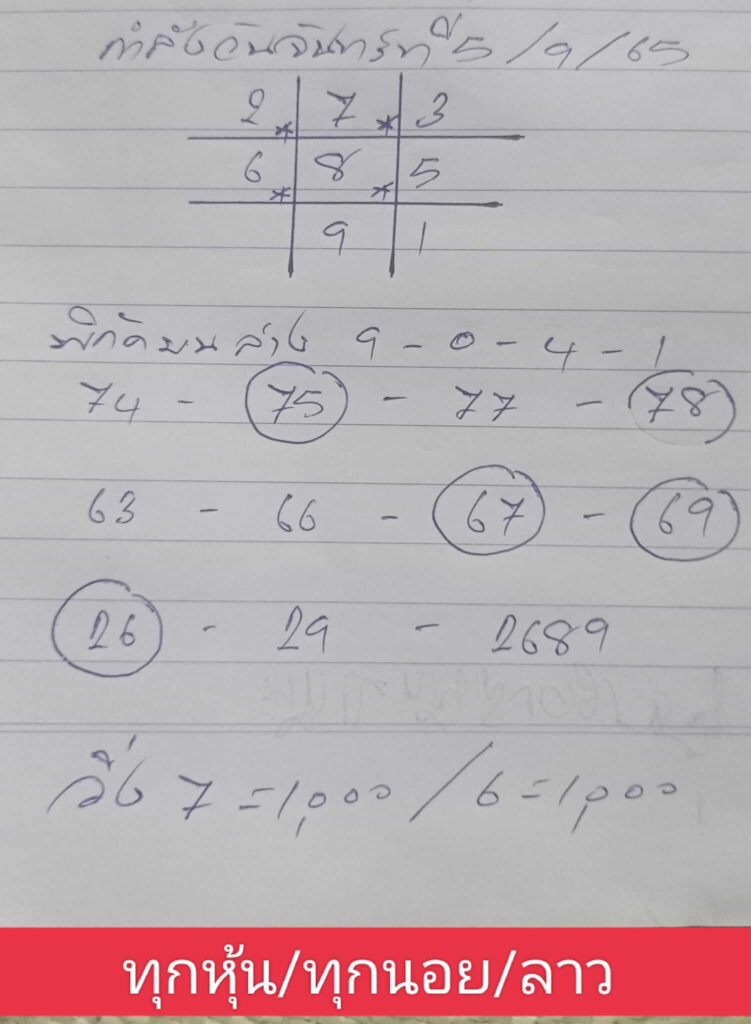 กำลังวันจันทร์ที่ 5/9/65
2 * 7 * 3
6 * 8 * 5
9 1
พิกัดบนล่าง 9 - 0 - 4 - 1
74 - 75 - 77 - 78
63 - 66 - 67 - 69
26 - 29 - 2689
วิ่ง 7 = 1,000 / 6 = 1,000
ทุกหุ้น/ทุกนอย/ลาว